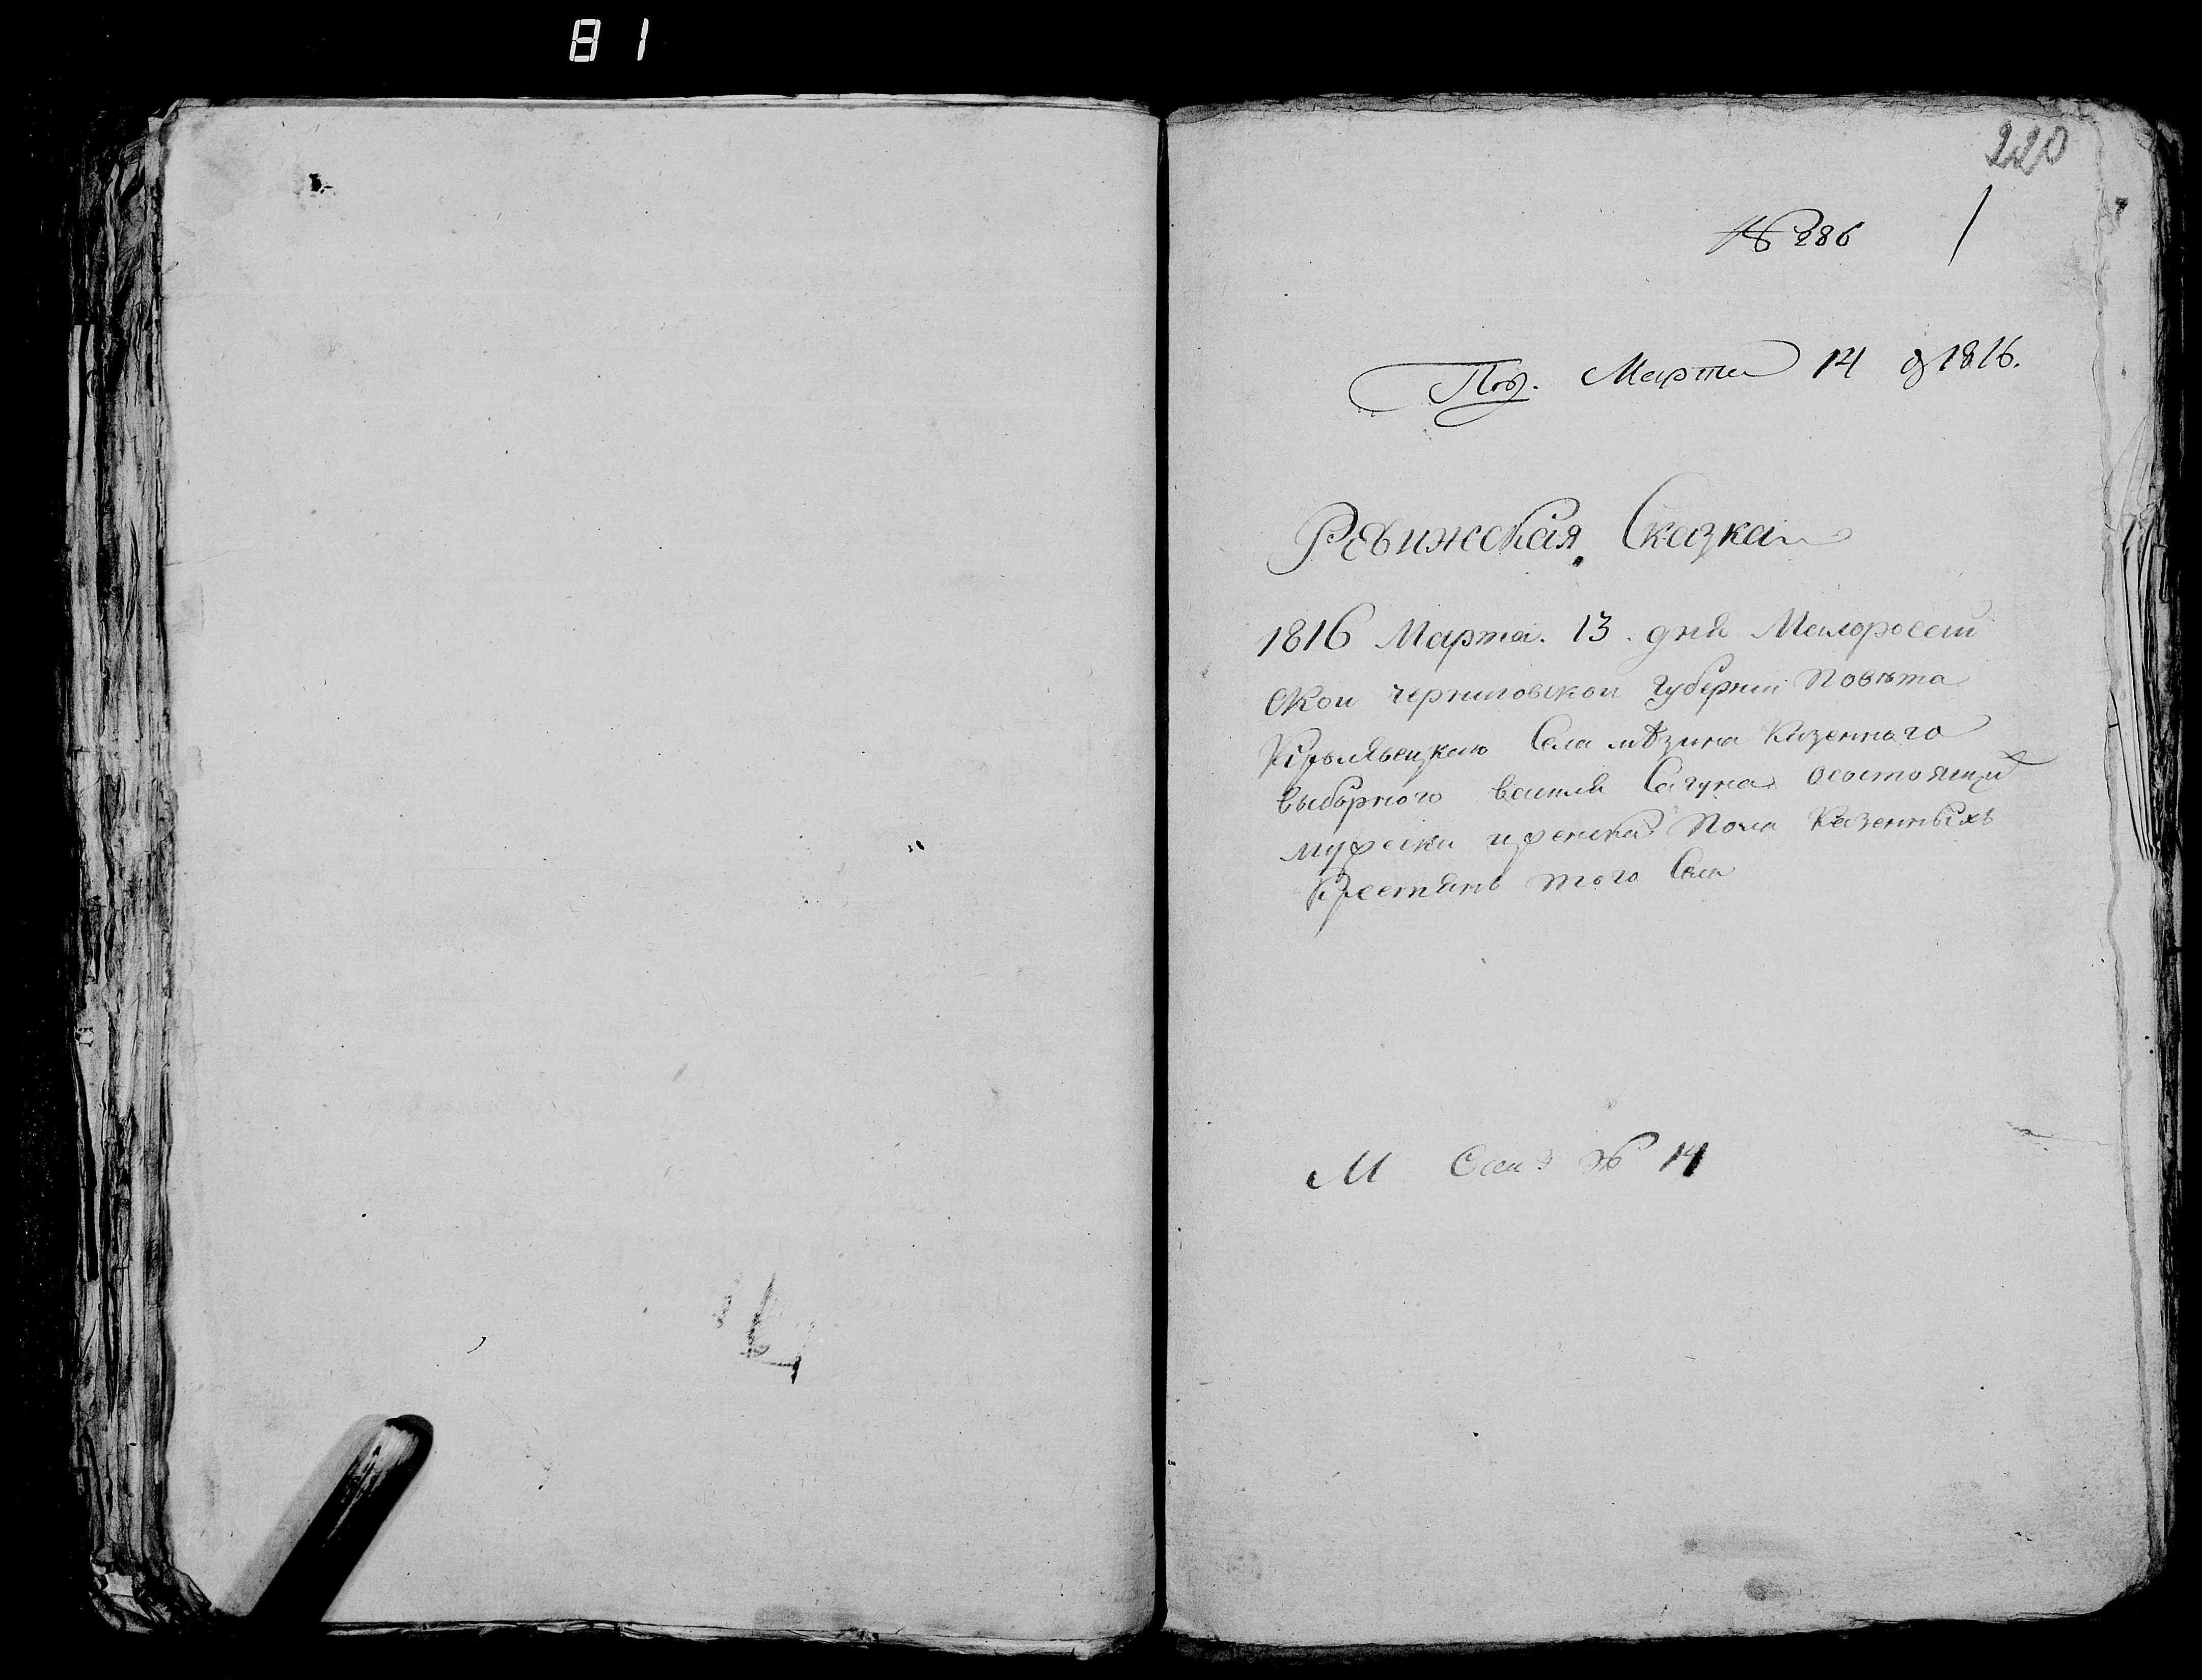 81
220
№ 286
Под. Марта 14 д 1816.
Ревижская Сказка
1816 Марта. 13. дня Малоросеи
ской черниговской губернии Повѣта
Кролевецкаго Села мѣзина Казенного
выборного василя Сагуна осостоящих
мужеска иженска Пола Казенныхъ
Крестянъ того Села
М № 14